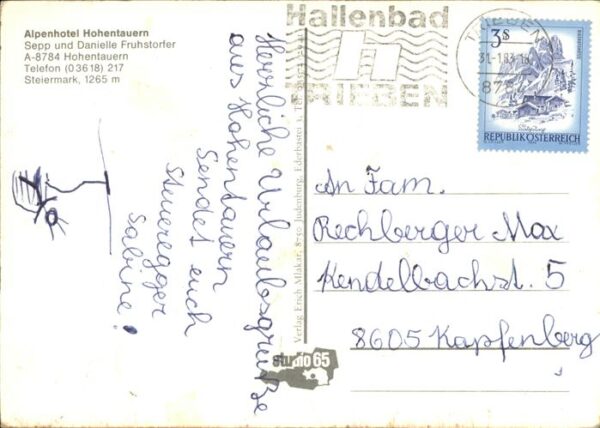 Alpenhotel Hohentauern
Sepp und Danielle Fruhstorfer
A-8784 Hohentauern
Telefon (03618) 217
Steiermark, 1265 m
Herrliche Urlaubsgrüße
aus Hohentauern
Sendet euch
Steueregger
Sabine!
Verlag Erich Mlakar, 8750 Judenburg, Ederbastei 1, Tel.
studio 65
Hallenbad
h
TRIEBEN
TRIEBEN
31.-1.83-18
8784
3 S
REPUBLIK ÖSTERREICH
An Fam.
Rechberger Max
Kendelbachst. 5
8605 Kapfenberg